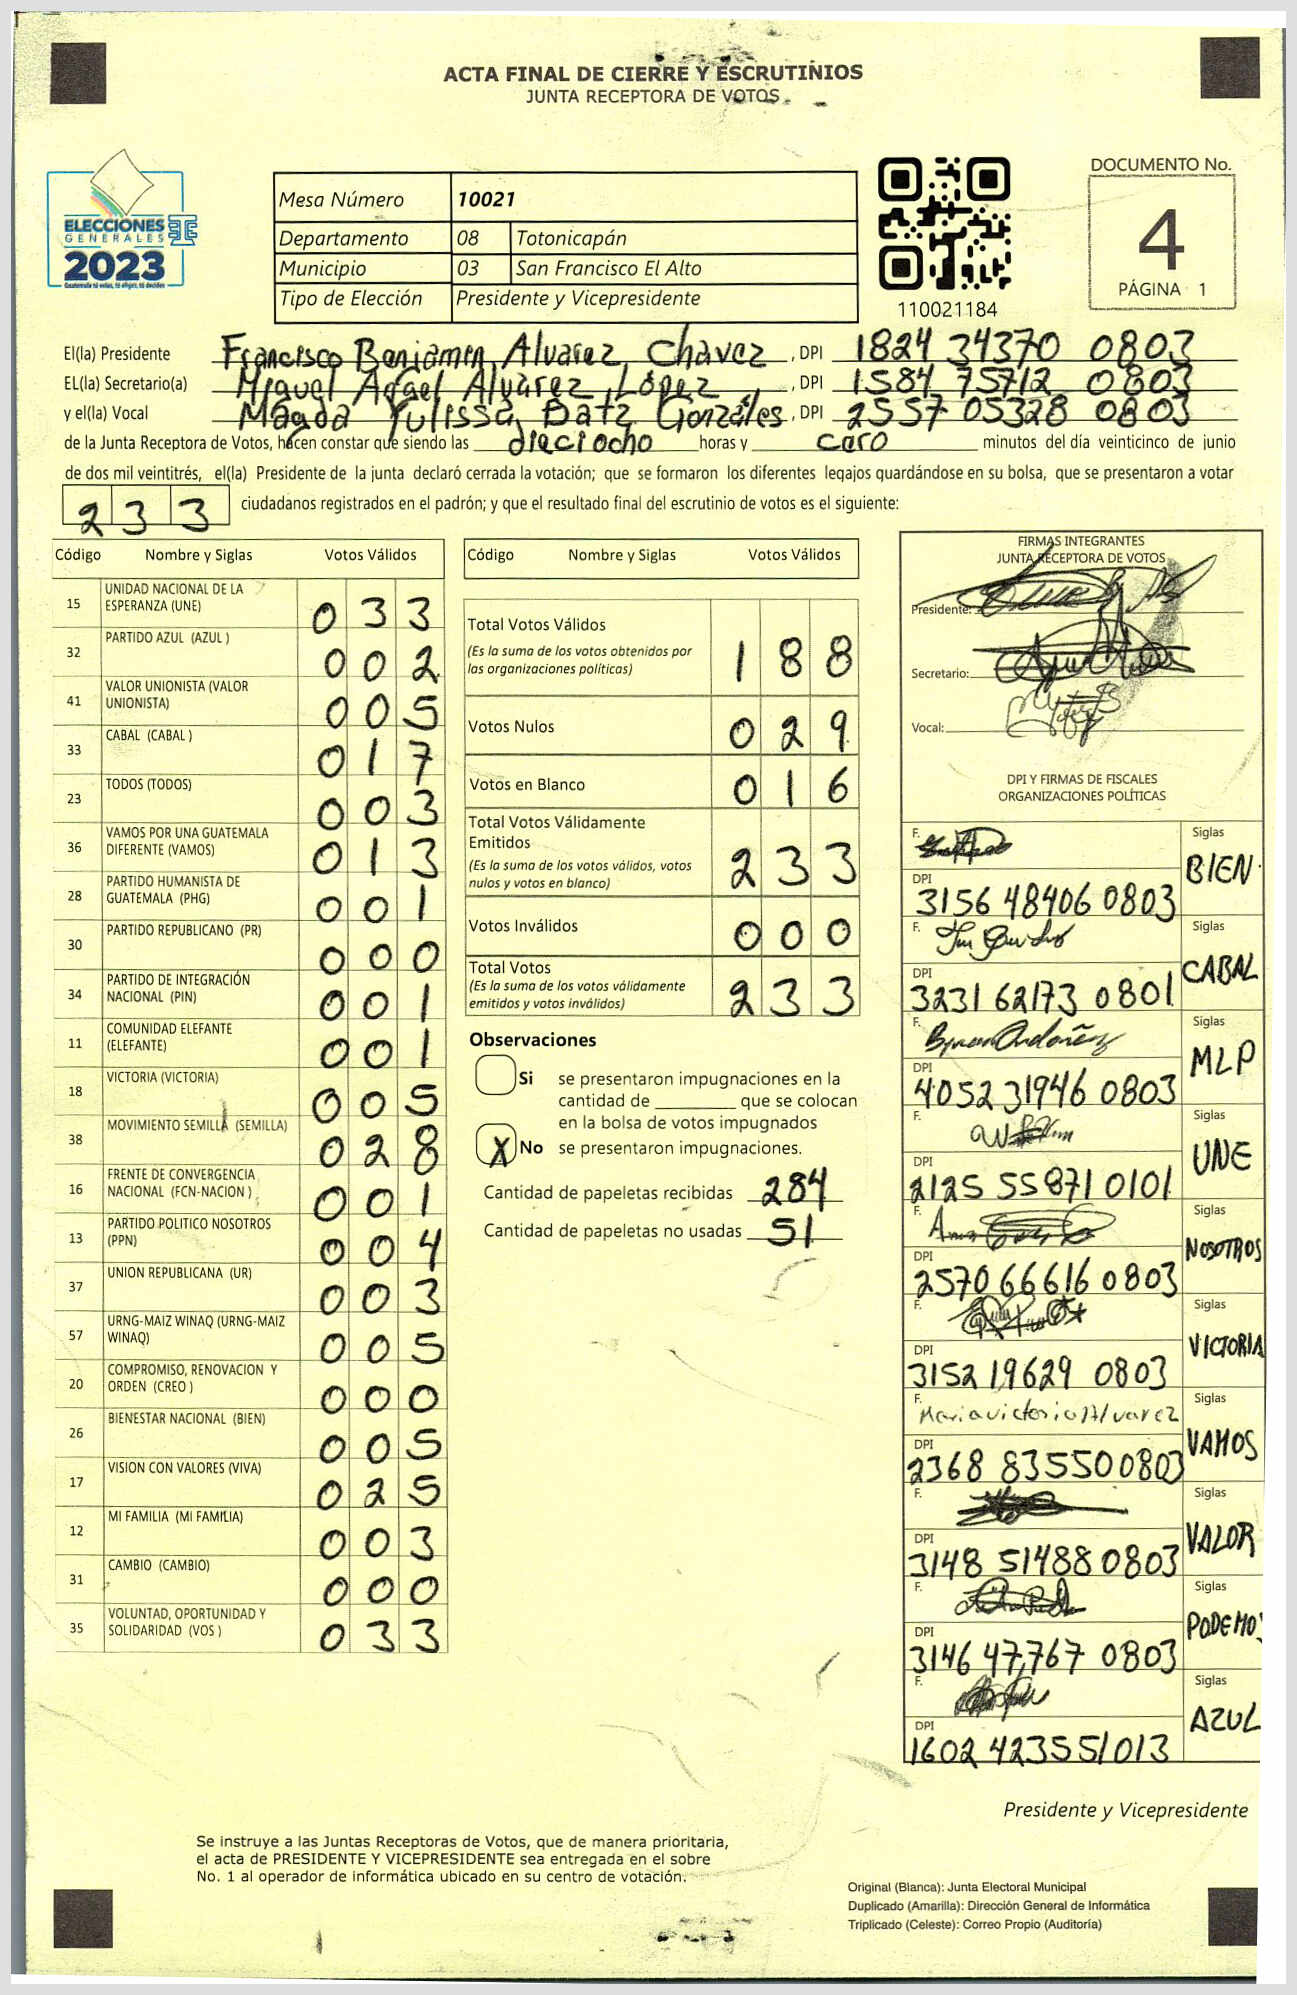 ACTA FINAL DE CIERRE Y ESCRUTINIOS
JUNTA RECEPTORA DE VOTOS
ELECCIONES
GENERALES
2023
Guatemala tú votas, tú eliges, tú decides
Mesa Número 10021
Departamento 08 Totonicapán
Municipio 03 San Francisco El Alto
Tipo de Elección Presidente y Vicepresidente
110021184
DOCUMENTO No.
4
PÁGINA 1
El(la) Presidente Francisco Benjamen Alvarez Chavez, DPI 1824 34370 0803
EL(la) Secretario(a) Miguel Angel Alvarez López, DPI 1584 75712 0803
y el(la) Vocal Magda Yulissa Batz Gonzáles, DPI 2557 05328 0803
de la Junta Receptora de Votos, hacen constar que siendo las dieciocho horas y cero minutos del día veinticinco de junio
de dos mil veintitrés, el(la) Presidente de la junta declaró cerrada la votación; que se formaron los diferentes legajos quardándose en su bolsa, que se presentaron a votar
233 ciudadanos registrados en el padrón; y que el resultado final del escrutinio de votos es el siguiente:
Código Nombre y Siglas Votos Válidos
15 UNIDAD NACIONAL DE LA ESPERANZA (UNE) 033
32 PARTIDO AZUL (AZUL ) 002
41 VALOR UNIONISTA (VALOR UNIONISTA) 005
33 CABAL (CABAL ) 017
23 TODOS (TODOS) 003
36 VAMOS POR UNA GUATEMALA DIFERENTE (VAMOS) 013
28 PARTIDO HUMANISTA DE GUATEMALA (PHG) 001
30 PARTIDO REPUBLICANO (PR) 000
34 PARTIDO DE INTEGRACIÓN NACIONAL (PIN) 001
11 COMUNIDAD ELEFANTE (ELEFANTE) 001
18 VICTORIA (VICTORIA) 005
38 MOVIMIENTO SEMILLA (SEMILLA) 028
16 FRENTE DE CONVERGENCIA NACIONAL (FCN-NACION ) 001
13 PARTIDO POLITICO NOSOTROS (PPN) 004
37 UNION REPUBLICANA (UR) 003
57 URNG-MAIZ WINAQ (URNG-MAIZ WINAQ) 005
20 COMPROMISO, RENOVACION Y ORDEN (CREO ) 000
26 BIENESTAR NACIONAL (BIEN) 005
17 VISION CON VALORES (VIVA) 025
12 MI FAMILIA (MI FAMILIA) 003
31 CAMBIO (CAMBIO) 000
35 VOLUNTAD, OPORTUNIDAD Y SOLIDARIDAD (VOS ) 033
Código Nombre y Siglas Votos Válidos
Total Votos Válidos 188
(Es la suma de los votos obtenidos por
las organizaciones políticas)
Votos Nulos 029
Votos en Blanco 016
Total Votos Válidamente
Emitidos 233
(Es la suma de los votos válidos, votos
nulos y votos en blanco)
Votos Inválidos 000
Total Votos 233
(Es la suma de los votos válidamente
emitidos y votos inválidos)
Observaciones
Si se presentaron impugnaciones en la
cantidad de ________ que se colocan
en la bolsa de votos impugnados
X No se presentaron impugnaciones.
Cantidad de papeletas recibidas 284
Cantidad de papeletas no usadas 51
FIRMAS INTEGRANTES
JUNTA RECEPTORA DE VOTOS
Presidente:
Secretario:
Vocal:
DPI Y FIRMAS DE FISCALES
ORGANIZACIONES POLÍTICAS
F. Siglas BIEN
DPI 3156 48406 0803
F. Siglas CABAL
DPI 3231 62173 0801
F. Byron Ordoñez Siglas MLP
DPI 4052 31946 0803
F. Siglas UNE
DPI 2125 55871 0101
F. Siglas NOSOTROS
DPI 2570 66616 0803
F. Siglas VICTORIA
DPI 3152 19629 0803
F. Maria victoria Alvarez Siglas VAMOS
DPI 2368 83550 0803
F. Siglas VALOR
DPI 3148 51488 0803
F. Siglas PODEMOS
DPI 3146 47767 0803
F. Siglas AZUL
DPI 1602 42355 1013
Presidente y Vicepresidente
Se instruye a las Juntas Receptoras de Votos, que de manera prioritaria,
el acta de PRESIDENTE Y VICEPRESIDENTE sea entregada en el sobre
No. 1 al operador de informática ubicado en su centro de votación.
Original (Blanca): Junta Electoral Municipal
Duplicado (Amarilla): Dirección General de Informática
Triplicado (Celeste): Correo Propio (Auditoría)